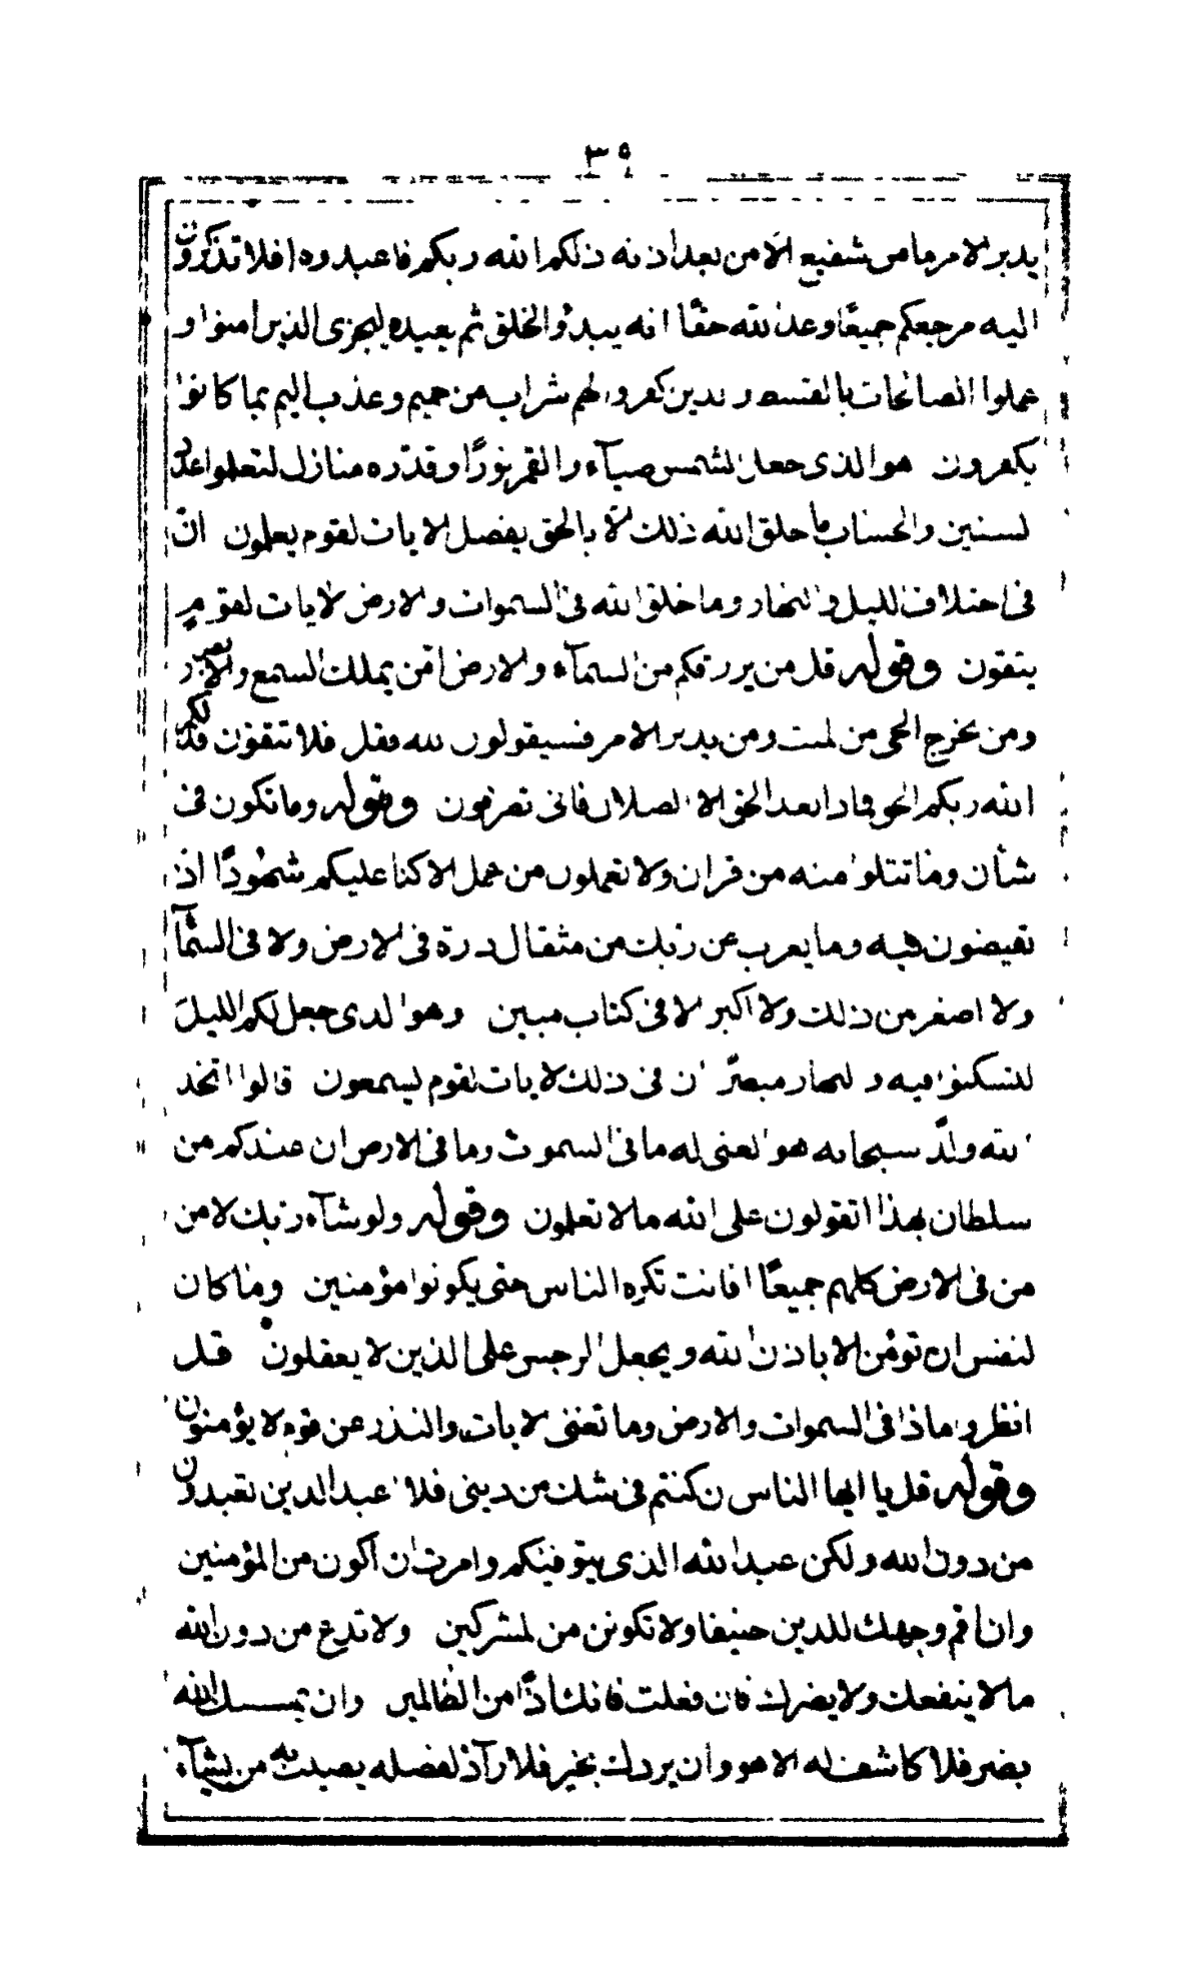 ٣٩
يدبر الامر ما من شفيع الا من بعد اذنه ذلكم الله ربكم فاعبدوه افلا تذكرون
اليه مرجعكم جميعًا وعد الله حقًا انه يبدؤ الخلق ثم يعيده ليجزى الذين امنوا و
عملوا الصالحات بالقسط والذين كفروا لهم شراب من حميم وعذاب اليم بما كانوا
يكفرون هو الذى جعل الشمس ضيآء والقمر نورًا وقدّره منازل لتعلموا عدد
السنين والحساب ما خلق الله ذلك الّا بالحق يفصل الايات لقوم يعلمون انّ
فى اختلاف الليل والنهار وما خلق الله فى السموات والارض لايات لقومٍ
يتقون وقوله قل من يرزقكم من السمآء والارض امّن يملك السمع والابصار
ومن يخرج الحى من الميت ومن يدبر الامر فسيقولون الله فقل افلا تتقون فذلكم
الله ربكم الحق فماذا بعد الحق الا الضلال فانى تصرفون وقوله وما تكون فى
شأن وما تتلوا منه من قران ولا تعملون من عمل الا كنا عليكم شهودًا اذ
تفيضون فيه وما يعزب عن ربك من مثقال ذرة فى الارض ولا فى السمآء
ولا اصغر من ذلك ولا اكبر الا فى كتاب مبين وهو الذى جعل لكم الليلَ
لتسكنوا فيه والنهار مبصرًا ان فى ذلك لايات لقوم يسمعون قالوا اتخذ
الله ولدًا سبحانه هو الغنى له ما فى السموات وما فى الارض ان عندكم من
سلطان بهذا اتقولون على الله ما لا تعلمون وقوله ولو شآء ربك لامن
من فى الارض كلهم جميعًا افانت تكره الناس حتى يكونوا مؤمنين وما كان
لنفس ان تؤمن الا باذن الله ويجعل الرجس على الذين لا يعقلون قل
انظروا ماذا فى السموات والارض وما تغنى الايات والنذر عن قوم لا يؤمنون
وقوله قل يا ايها الناس ان كنتم فى شك من دينى فلا اعبد الذين تعبدون
من دون الله ولكن اعبد الله الذى يتوفيكم وامرت ان اكون من المؤمنين
وان اقم وجهك للدين حنيفا ولا تكونن من المشركين ولا تدع من دون الله
ما لا ينفعك ولا يضرك فان فعلت فانك اذًا من الظالمين وان يمسسك الله
بضر فلا كاشف له الا هو وان يردك بخير فلا رآد لفضله يصيب به من يشآء